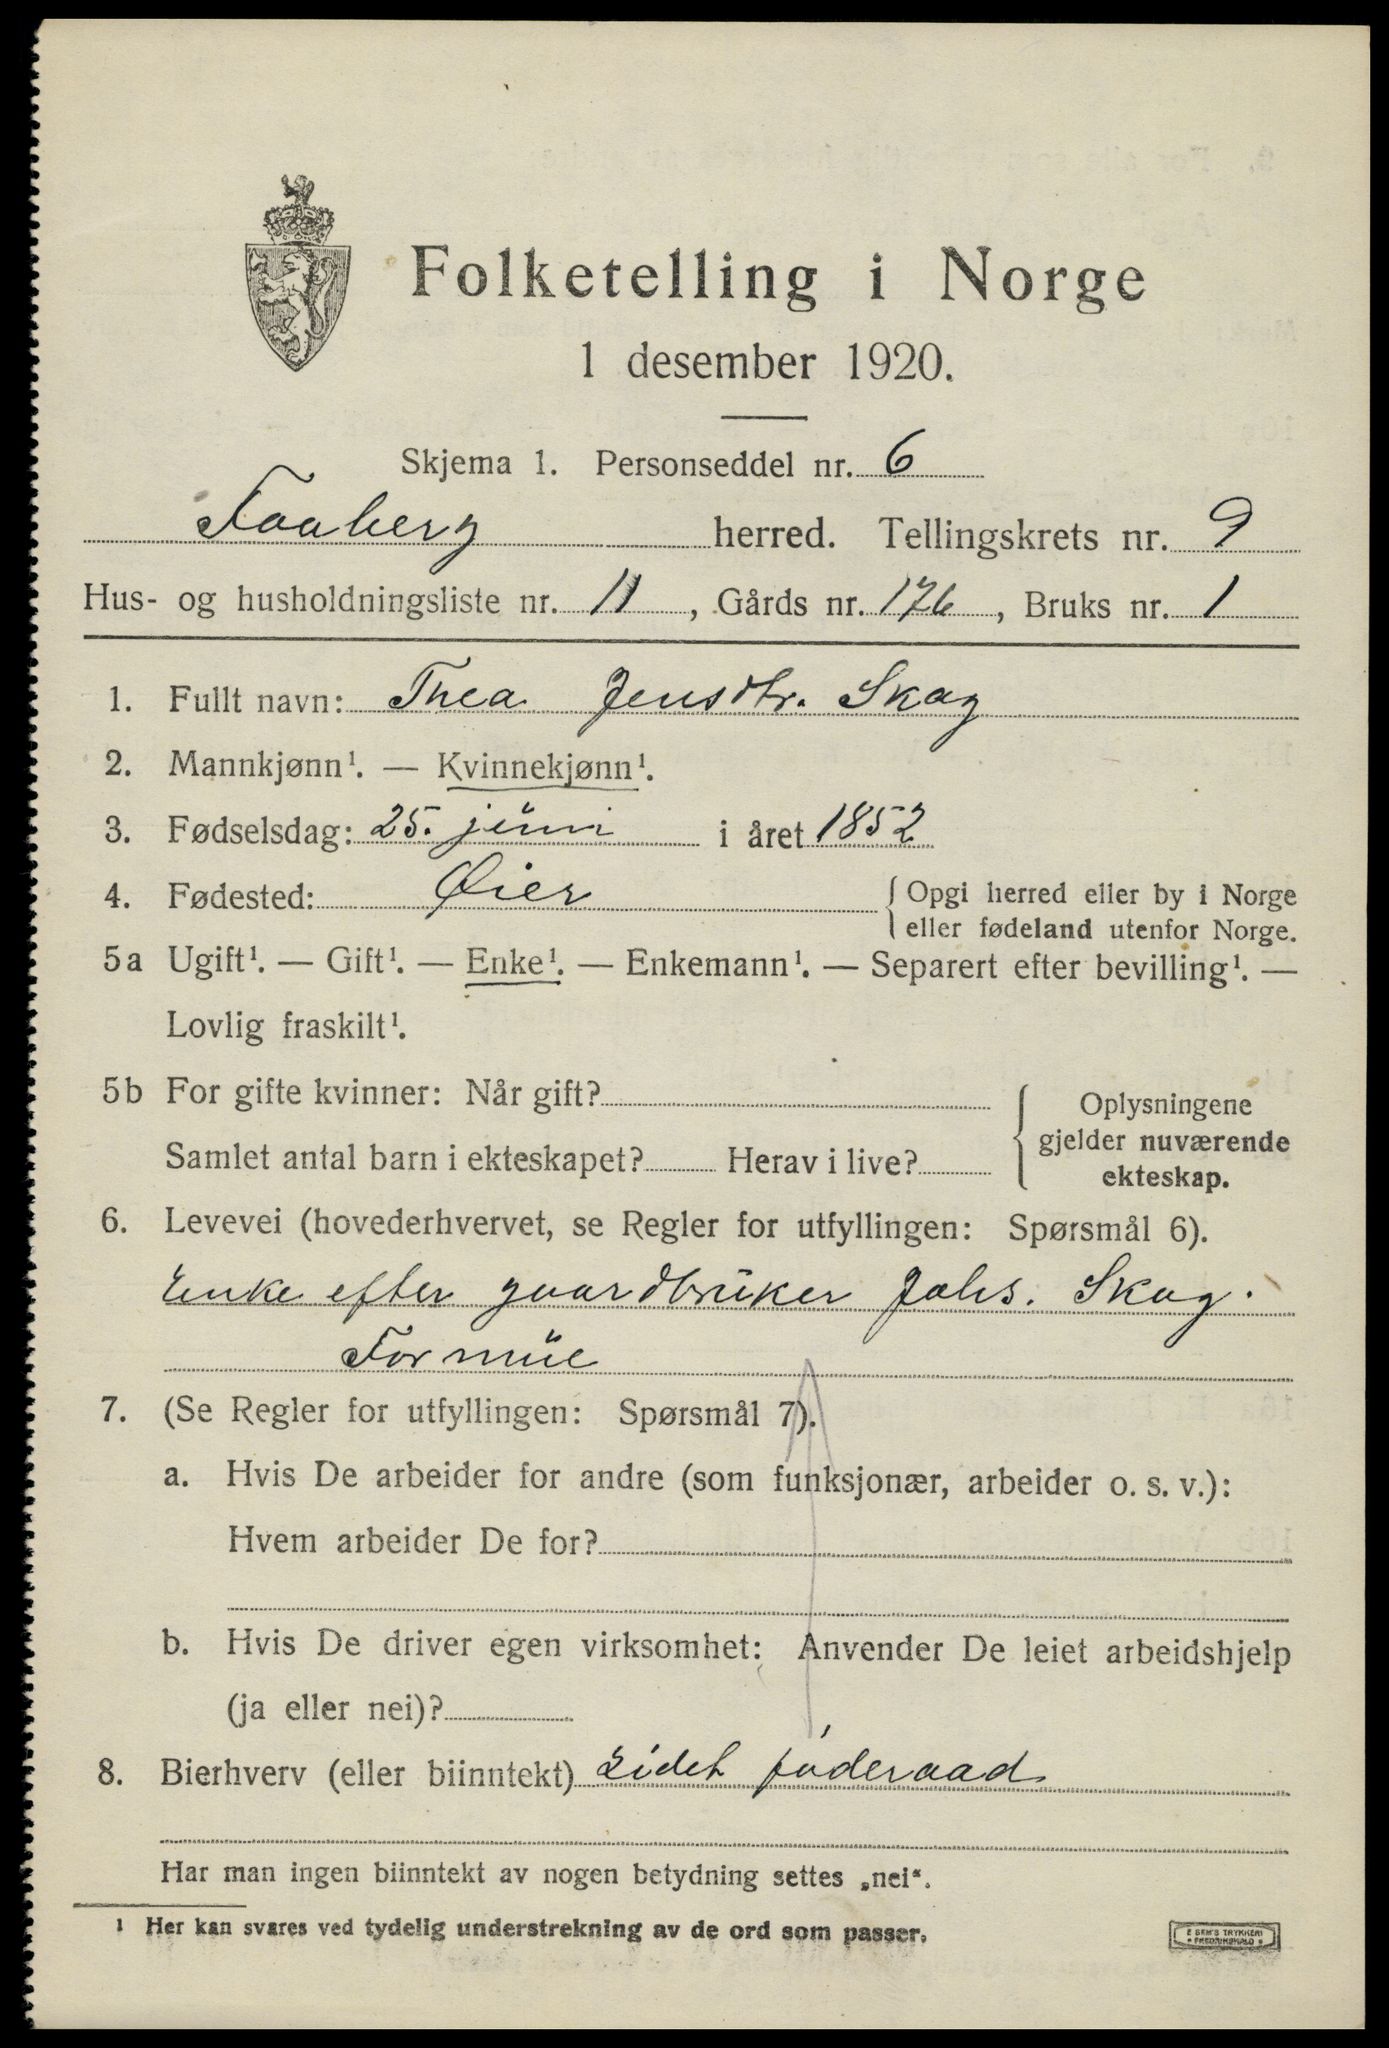 Folketelling i Norge
1 desember 1920.
Skjema 1. Personseddel nr. 6
Faaberg herred. Tellingskrets nr. 9
Hus- og husholdningsliste nr. 11, Gårds nr. 176, Bruks nr. 1
1. Fullt navn: Thea Jensdtr. Skag
2. Mannkjønn¹. — Kvinnekjønn¹.
3. Fødselsdag: 25. juni i året 1852
4. Fødested: Øier { Opgi herred eller by i Norge
eller fødeland utenfor Norge.
5a Ugift¹. — Gift¹. — Enke¹. — Enkemann¹. — Separert efter bevilling¹. —
Lovlig fraskilt¹.
5b For gifte kvinner: Når gift?
Samlet antal barn i ekteskapet? Herav i live?
Oplysningene
gjelder nuværende
ekteskap.
6. Levevei (hovederhvervet, se Regler for utfyllingen: Spørsmål 6).
Enke efter gaardbruker Johs. Skag.
Formue
7. (Se Regler for utfyllingen: Spørsmål 7).
a. Hvis De arbeider for andre (som funksjonær, arbeider o. s. v.):
Hvem arbeider De for?
b. Hvis De driver egen virksomhet: Anvender De leiet arbeidshjelp
(ja eller nei)?
8. Bierhverv (eller biinntekt) Lidet føderaad
Har man ingen biinntekt av nogen betydning settes „nei“.
1 Her kan svares ved tydelig understrekning av de ord som passer.
E SEM'S TRYKKERI
FREDRIKSHALD